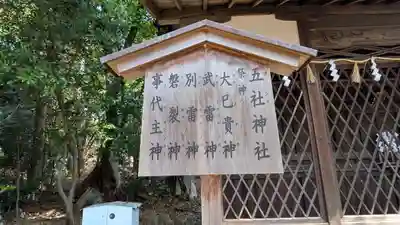 五社神社
祭神
大巳貴神
武雷神
別雷神
磐裂神
事代主神